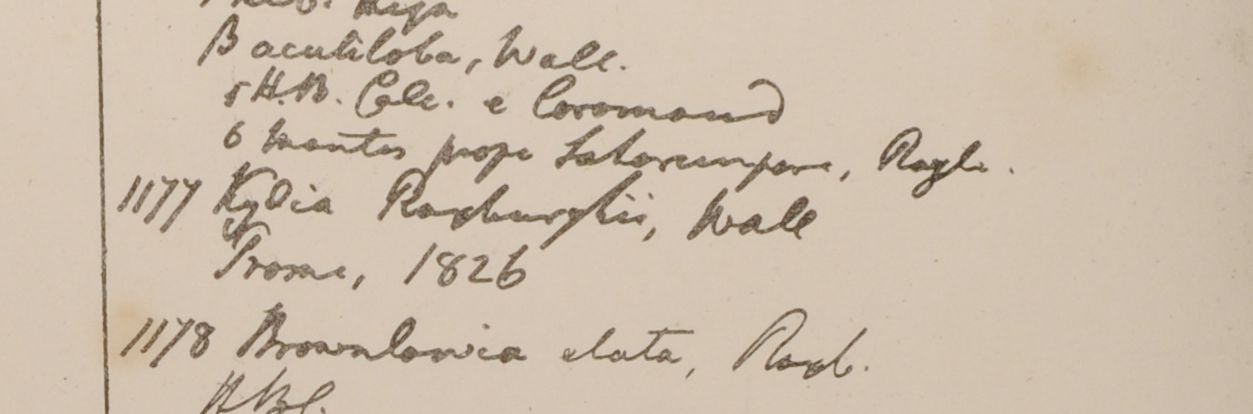 B acutiloba, Wall.
5 H.B. Calc. e Coromand
6 montes prope Saharunpore, Rogle.
1177 Kydia Roxburghii, Wall
Prome, 1826
1178 Brownlowia elata, Roxb.
HBC.